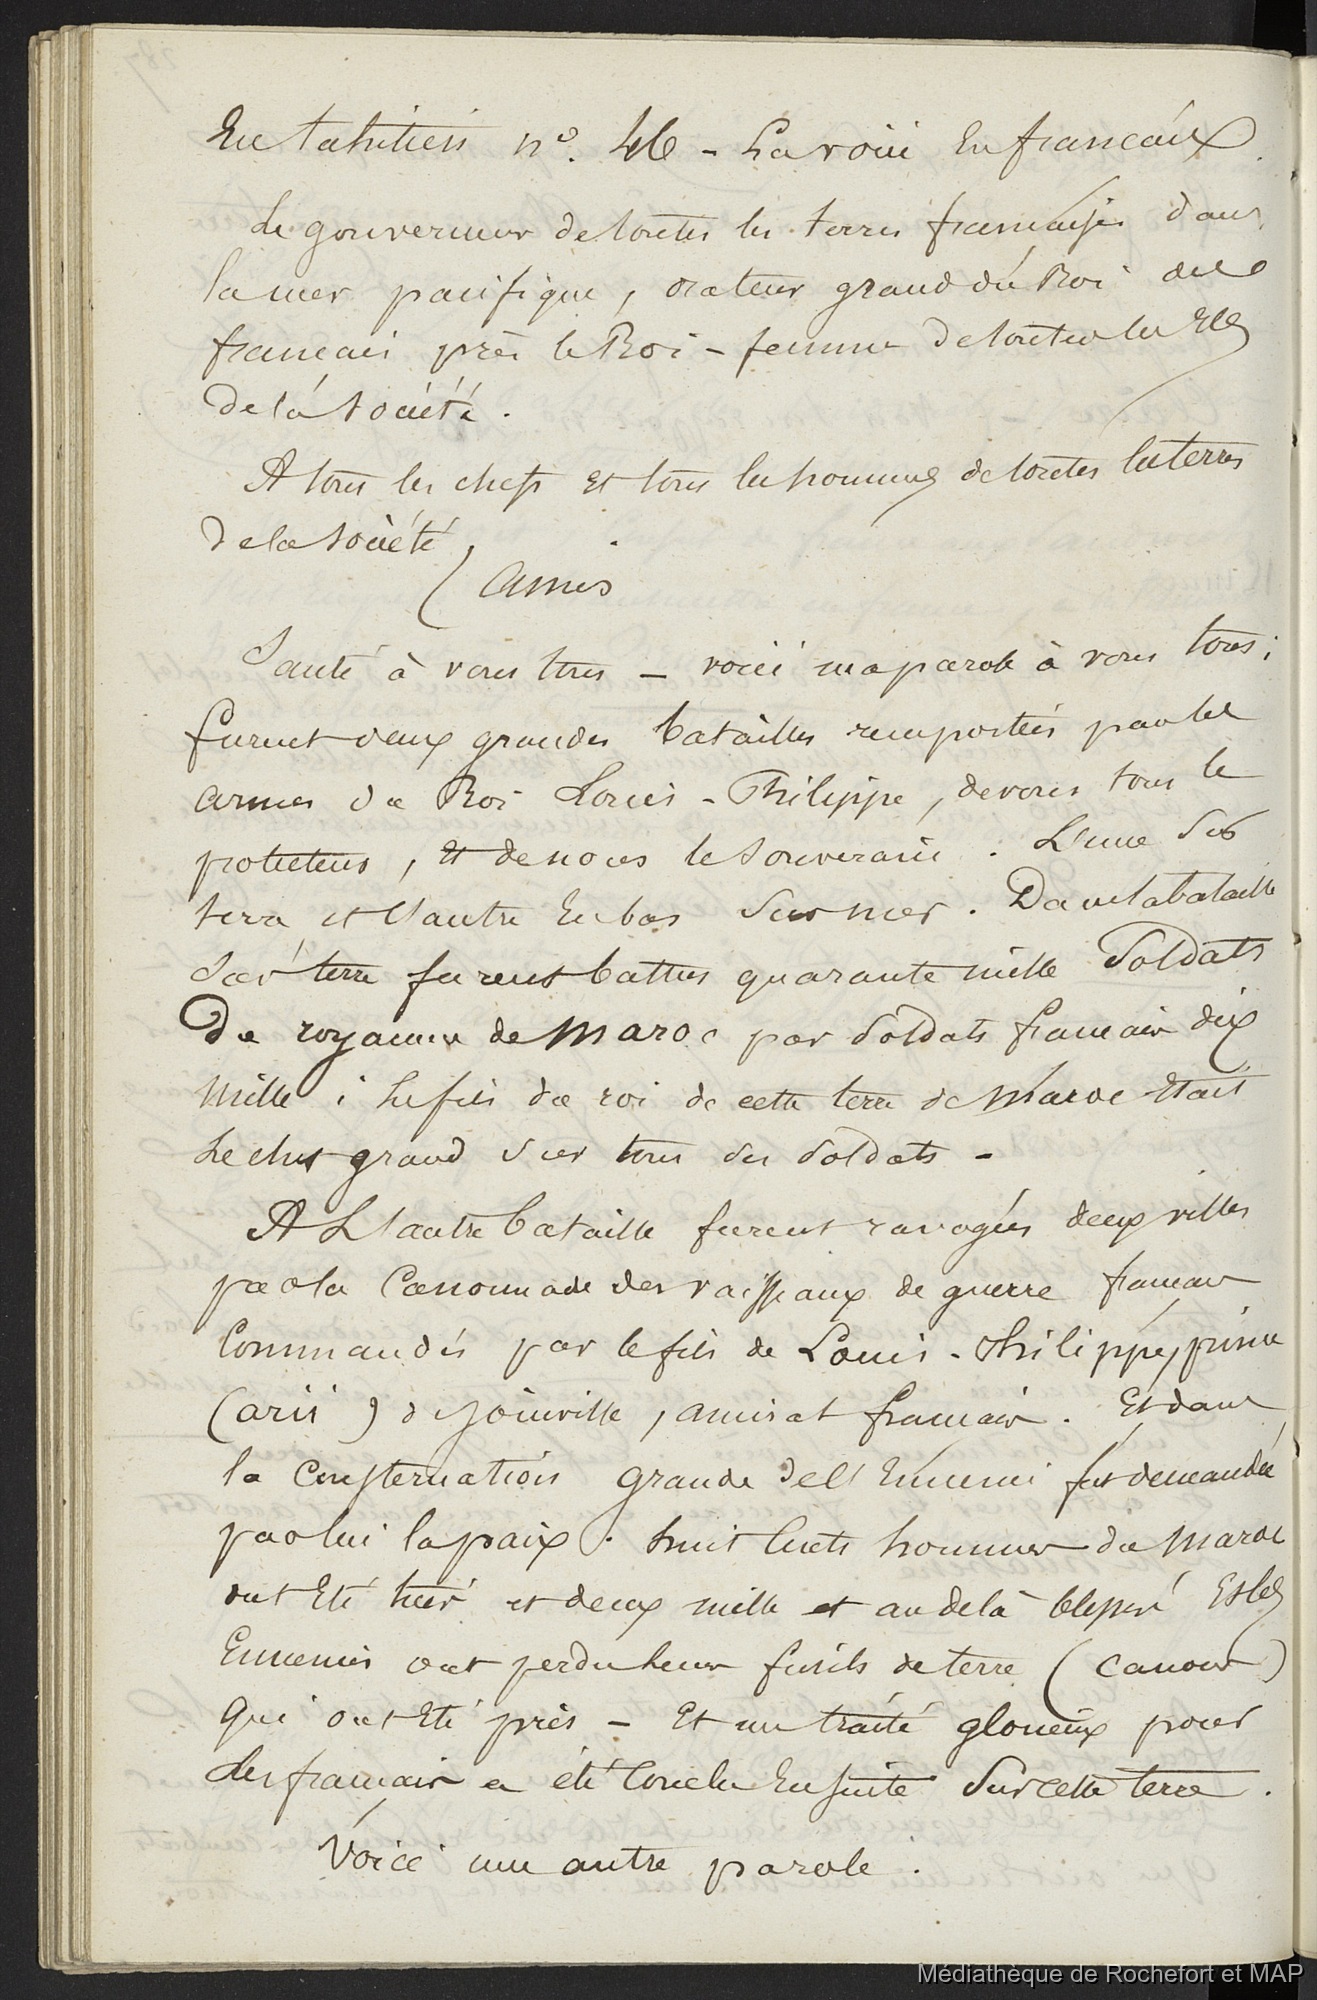 En tahitien n°. 46 - La voici En francaix.
Le gouverneur de toutes les terres françaises dans
la mer pacifique, orateur grand du Roi des
francais près le Roi - femme de toutes les Iles
de la société.
A tous les chefs et tous les hommes de toutes les terres
de la société,
Amis
Santé à vous tous - voici ma parole à vous tous ;
furent deux grandes batailles remportées par les
armes du Roi Louis - Philippe, de vous tous le
protecteur, et de nous le souverain. L'une sur
terre et l'autre En bas sur mer. Dans la bataille
sur terre furent battus quarante mille soldats
Du royaume de Maroc par soldats francais dix
mille ; Le fils du roi de cette terre de Maroc était
Le chef grand sur tous ses soldats -
A L'autre bataille furent ravagées deux villes
par la Canonnade des vaisseaux de guerre francais
Commandés par le fils de Louis - Philippe, prince
(arii) de joinville, amiral francais. Et dans
la consternation grande de l'Ennemi fut demandée
par lui la paix. huit cents hommes du Maroc
ont Eté tués et deux mille et au delà blessés Et les
Ennemis ont perdu leurs fusils de terre (canons)
qui ont Eté pris - Et un traité glorieux pour
Les francais a été Conclu Ensuite sur cette terre.
Voici une autre parole.
Médiathèque de Rochefort et MAP